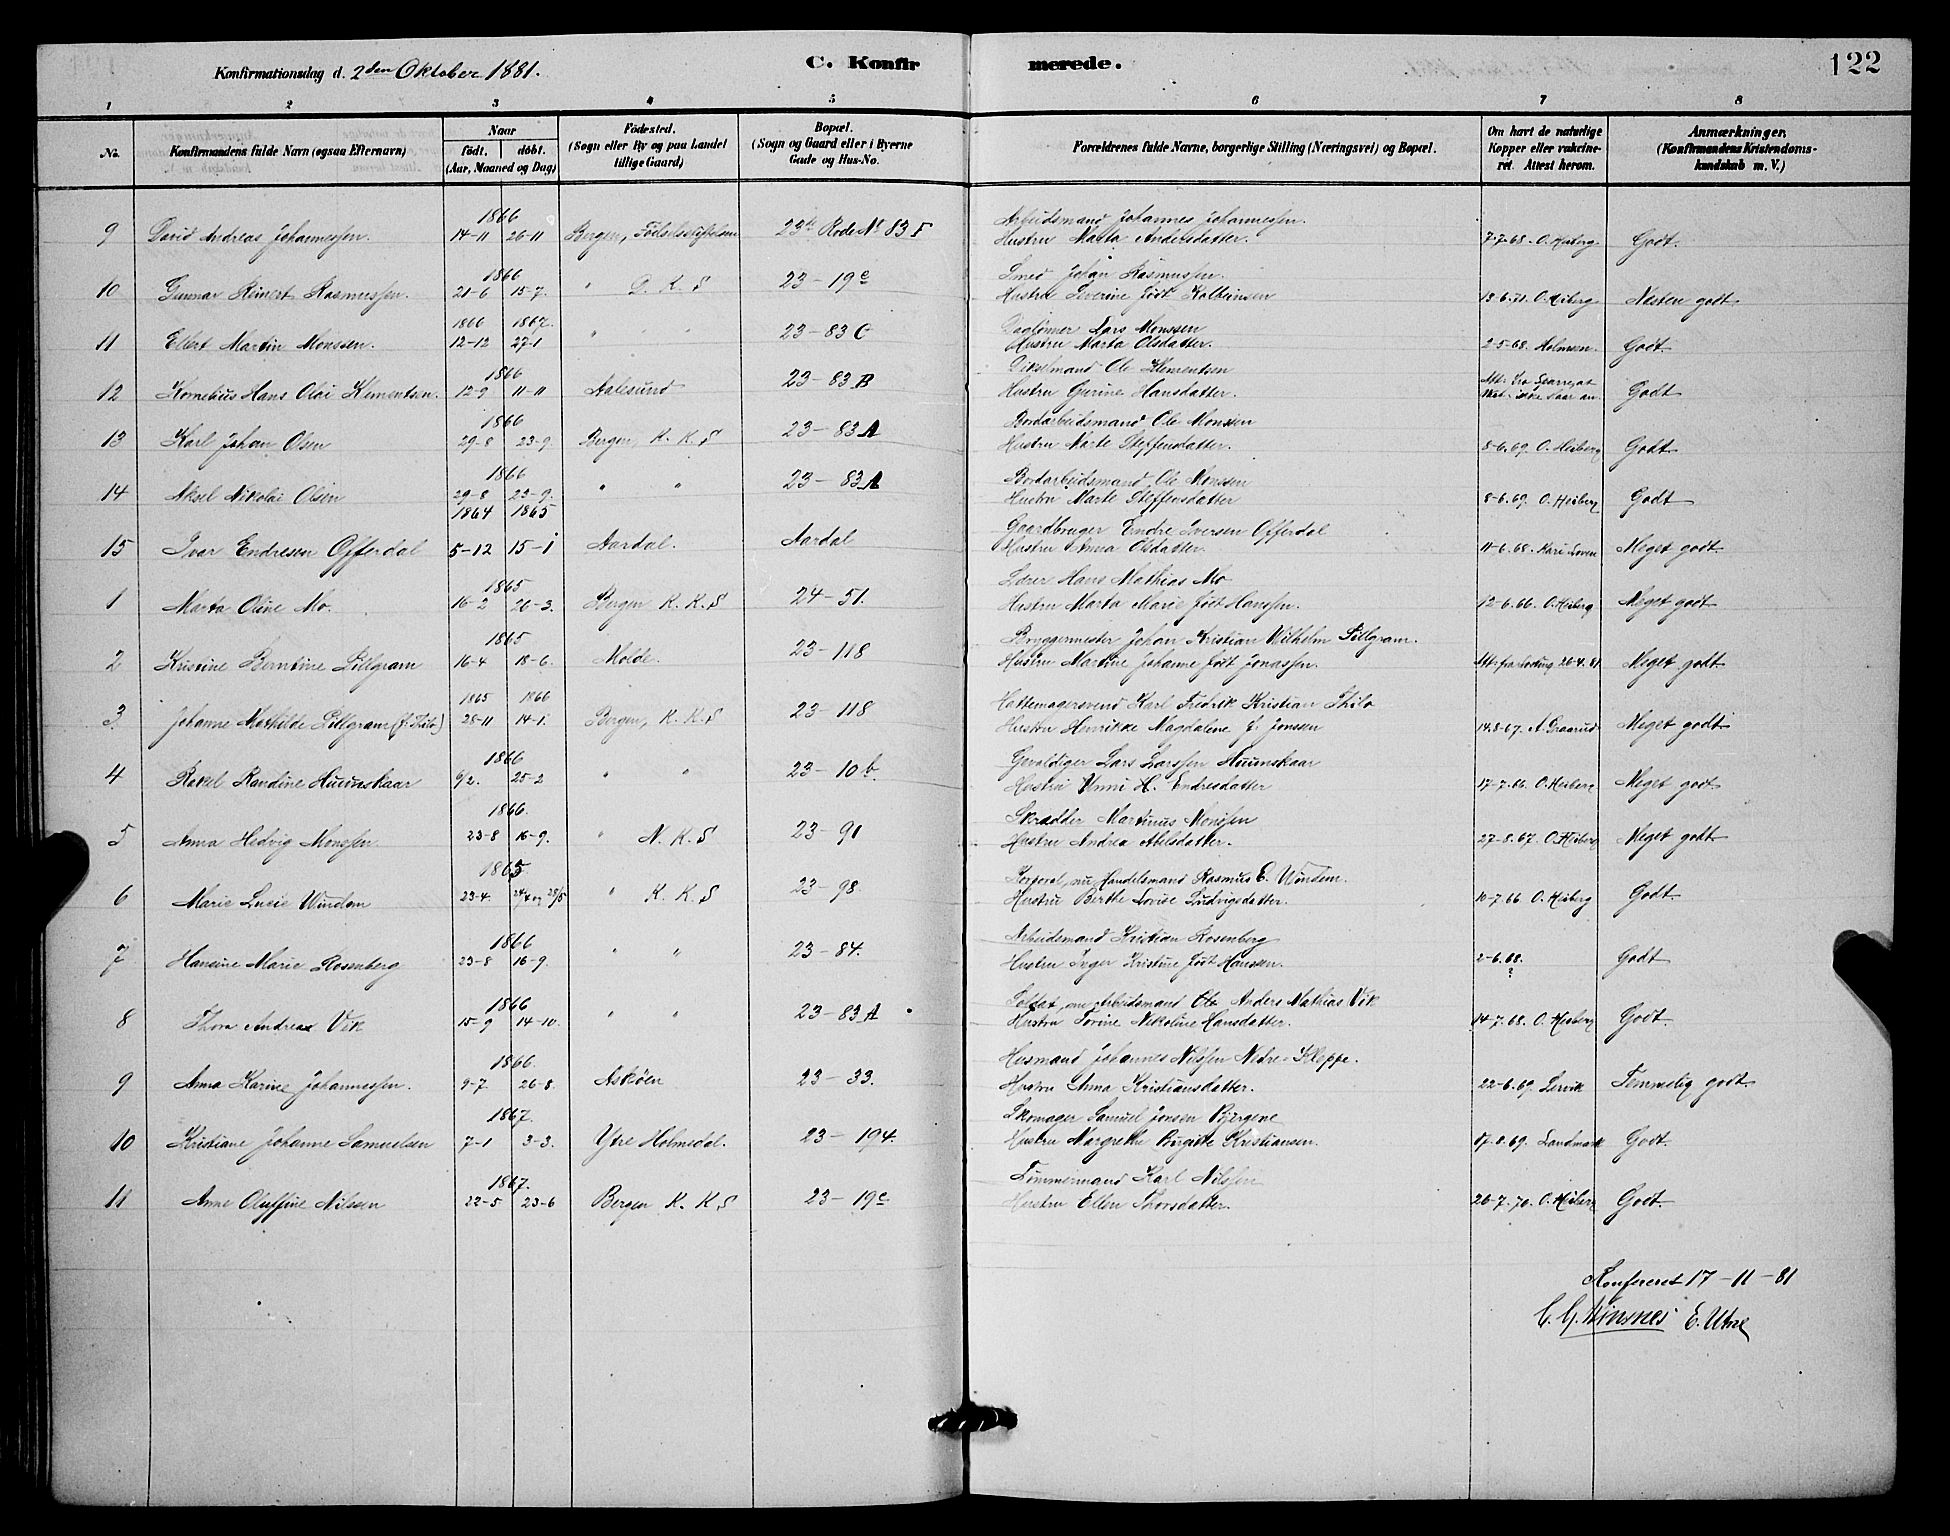 Konfirmationsdag d. 2den Oktober 1881.
C. Konfirmerede.
122
1 2 3 4 5 6 7 8
No. Konfirmandens fulde Navn (ogsaa Efternavn) Naar født. døbt. (Aar, Maaned og Dag) Fødested. (Sogn eller By og paa Landet tillige Gaard) Bopæl. (Sogn og Gaard eller i Byerne Gade og Hus-No. Forældrenes fulde Navne, borgerlige Stilling (Næringsvei) og Bopæl. Om havt de naturlige Kopper eller vakcineret. Attest herom. Anmærkninger. (Konfirmandens Kristendomskundskab m. V.)
1866 Arbeidsmand Johannes Johannessen.
9 David Andreas Johannessen. 14-11 26-11 Bergen, Fødselsstiftelsen 23de Rode No 83 F Hustru Marta Andersdatter. 7-7-68. O. Heiberg Godt.
1866 Smed Johan Rasmussen.
10 Gunnar Reinert Rasmussen. 21-6 15-7. " D. K. S 23-19c Hustru Severine født Kolbeinsen 13-6.71. O. Heiberg Næsten godt
1866 1867. Daglønner Lars Monssen
11 Elert Martin Monssen. 12-12 27-1 " " " 23-83 C Hustru Marta Olsdatter. 2-5-68. Holmsen. Godt.
1866 Ole Klementsen
12 Kornelius Hans Olai Klementsen. 12-9 11-11 Aalesund 23-83 B Hustru Gurine Hansdatter. Godt
1866 Bordarbeidsmand Ole Monssen
13 Karl Johan Olsen 29-8 23-9. Bergen K. K. S 23-83 A Hustru Marte Steffensdatter. 8-6.69. O. Heiberg Godt
1866 Bordarbeidsmand Ole Monssen
14 Aksel Nikolai Olsen 29-8 23-9. " " 23-83 A Hustru Marte Steffensdatter 8-6.69. O. Heiberg Godt
1864 1865 Gaardbruger Endre Iversen Offerdal
15 Ivar Endresen Offerdal 5-12 15-1 Aardal. Aardal Hustru Anna Olsdatter. 11-6.68. Kari Loven Meget godt
1865 Lærer Hans Mathias Mo
1 Marta Oline Mo. 16-2 26-3. Bergen K. K. S 24-51. Hustru Marta Marie født Hanssen. 12-6.66. O. Heiberg Meget godt
1865 Bryggermester Johan Kristian Wilhelm Pillgram.
2 Kristine Berntine Pillgram 16-4 18-6. Molde. 23-118 Hustru Martine Johanne født Jonassen. 26-4.81 Meget godt
1865 1866 Hattemagersvend Karl Fredrik Kristian Thilo
3. Johanne Mathilde Pillgram (f. Thilo) 28-11 14-1. Bergen, K. K. S 23-118 Hustru Henrikke Magdalene f. Jonssen 14.8-67. A. Graarud Meget godt
1866 Gevaldiger Lars Larssen Huunskaar
4 Rakel Randine Huunskaar 9/2. 25-2 " " 23-10 b. Hustru Unni H. Endresdatter 17-7.66. O. Heiberg Meget godt
1866. Skrædder Martinus Monssen
5 Anna Hedvig Monssen. 23-8 16-9. " N. K. S 23-91 Hustru Andrea Abelsdatter. 27-8.67. O. Heiberg Meget godt
1865 Korporal, nu Handelsmand Rasmus E. Windem.
6 Marie Lucie Windem 23-4. 24/4 og 28/5 " K. K. S 23-98 Hustru Berthe Lovise Ludvigsdatter. 10-7.66 O. Heiberg Godt.
1866 Arbeidsmand Kristian Rosenberg
7 Hansine Marie Rosenberg 23-8 16-9. " " 23-84. Hustru Inger Kristine født Hanssen. 2-6.68. ? Godt
1866 Soldat, nu Arbeidsmand Ole Anders Mathias Vik
8 Thora Andrea Vik 15-9 14-10. " " 23-83 A Hustru Torine Nikoline Hansdatter. 14-7.68. O. Heiberg Godt.
1866. Husmand Johannes Nilssen Nedre-Kleppe.
9 Anna Karine Johannessen. 9-7 26-8. Askøen 23-33. Hustru Anna Kristiansdatter. 22-6.69. Lervik Temmelig godt
1867. Skomager Samuel Jonsen Bjergene
10 Kristiane Johanne Samuelsen 7-1 3-3. Ytre Holmedal. 23-194. Hustru Margrethe Birgitte Kristiansen. 17-8.69. Landmark Godt.
1867. Tømmermand Karl Nilssen
11 Anne Oluffine Nilssen 22-5 23-6 Bergen K. K. S 23-19c Hustru Ellen Thorsdatter. 26-7.70. O. Heiberg Godt.
Konfereret 17-11-81
E. Utne